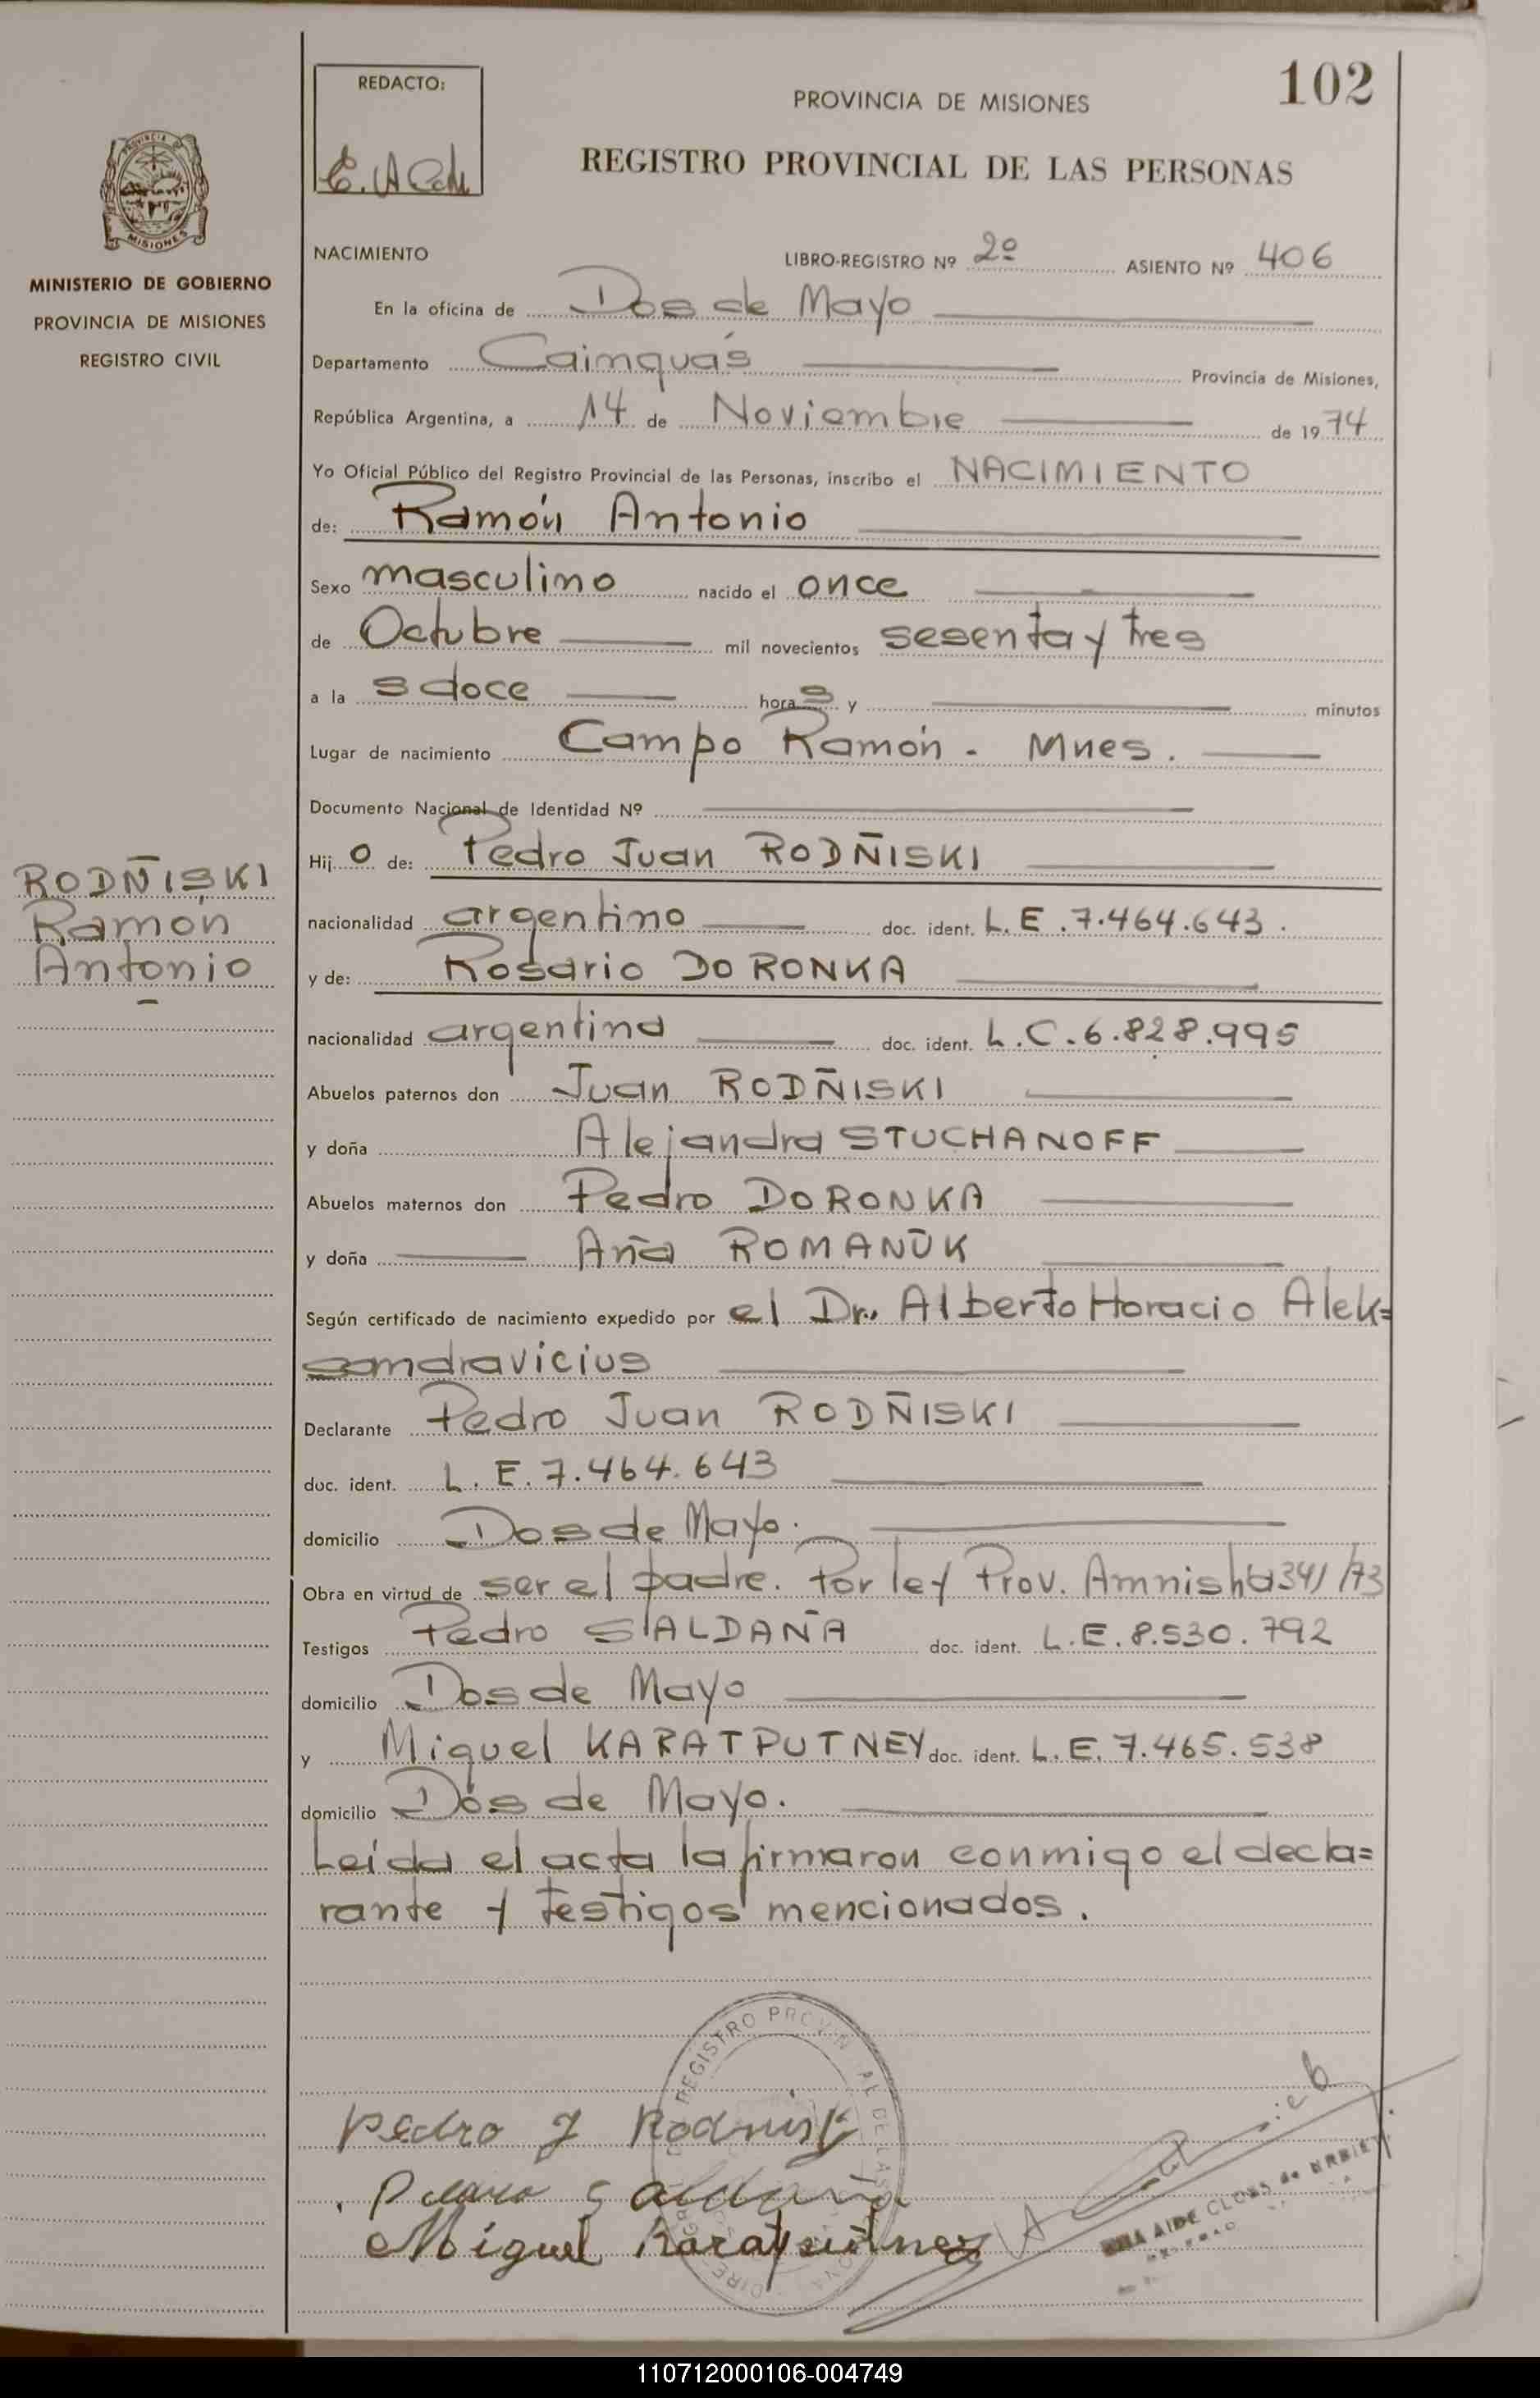 102
REDACTO:
PROVINCIA DE MISIONES
REGISTRO PROVINCIAL DE LAS PERSONAS
PROVINCIA DE
MISIONES
MINISTERIO DE GOBIERNO
PROVINCIA DE MISIONES
REGISTRO CIVIL
NACIMIENTO LIBRO-REGISTRO Nº 2º ASIENTO Nº 406
En la oficina de Dos de Mayo
Departamento Cainguás Provincia de Misiones,
República Argentina, a 14 de Noviembre de 1974
Yo Oficial Público del Registro Provincial de las Personas, inscribo el NACIMIENTO
de: Ramón Antonio
Sexo masculino nacido el once
de Octubre mil novecientos sesenta y tres
a la s doce horas y minutos
Lugar de nacimiento Campo Ramón - Mnes.
Documento Nacional de Identidad Nº
Hijo de: Pedro Juan RODÑISKI
RODÑISKI
Ramón
Antonio
nacionalidad argentino doc. ident. L.E.7.464.643.
y de: Rosario DORONKA
nacionalidad argentina doc. ident. L.C.6.828.995
Abuelos paternos don Juan RODÑISKI
y doña Alejandra STUCHANOFF
Abuelos maternos don Pedro DORONKA
y doña Ana ROMANUK
Según certificado de nacimiento expedido por el Dr. Alberto Horacio Alek=
sandravicius
Declarante Pedro Juan RODÑISKI
doc. ident. L.E.7.464.643
domicilio Dos de Mayo.
Obra en virtud de ser el padre. Por ley Prov. Amnistia 341/73
Testigos Pedro SALDAÑA doc. ident. L.E.8.530.792
domicilio Dos de Mayo
y Miguel KARATPUTNEY doc. ident. L.E.7.465.538
domicilio Dos de Mayo.
Leída el acta la firmaron conmigo el decla=
rante y testigos mencionados.
REGISTRO PROVINCIAL DE LAS
Pedro J Rodniski
Pedro Saldaña
Miguel
AIDE CLOSS de
110712000106-004749